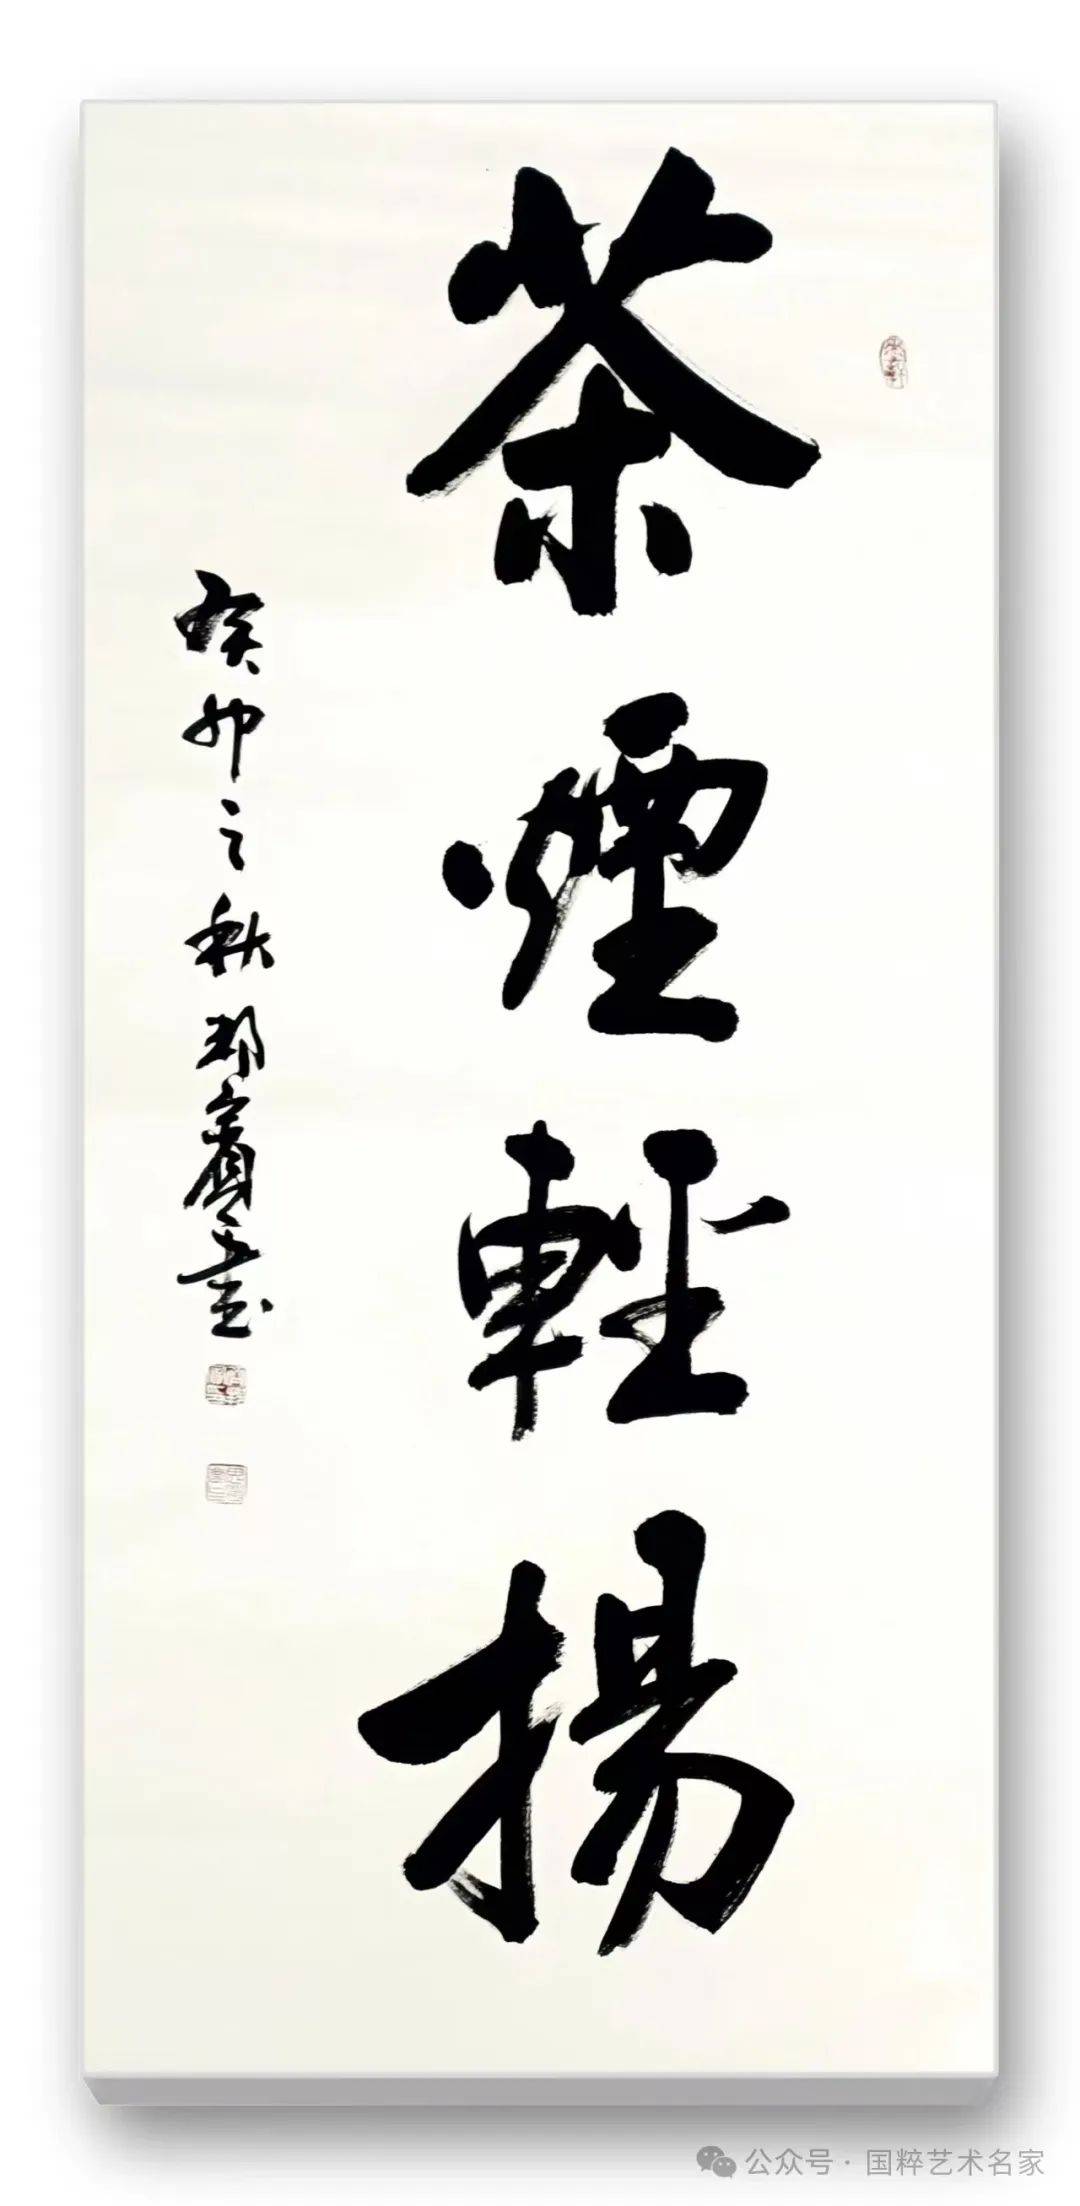 茶煙輕揚
癸卯之秋 賓玉書
公众号·国粹艺术名家